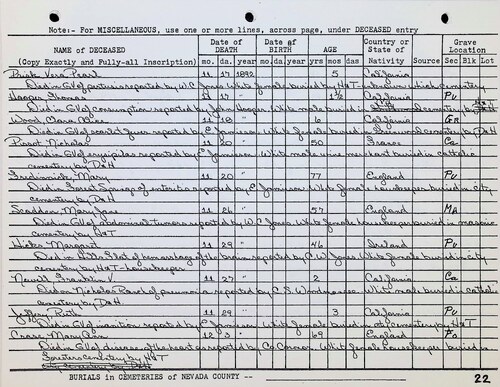 Note:- For MISCELLANEOUS, use one or more lines, across page, under DECEASED entry
NAME OF DECEASED
(Copy Exactly and Fully-all Inscription)
Date of DEATH
mo. da. year
Date of BIRTH
mo. da. year
AGE
yrs mos das
Country or State of Nativity
Source
Grave Location
Sec Blk Lot
Vera Pearl 11 17 1892 5 California
Died in GV of reported by W.C. Jones White female buried by H&T unknown which cemetery
Hooper Thomas 11 17 " 1½ California Pu
Died in GV of consumption reported by John Hooper White male buried in cemetery by
Wood 11 18 " 6 California GR
Died in GV of scarlet fever reported by E Jamieson White female buried in cemetery by D&H
Nicholas 11 20 " 50 France Ca
Died in GV of reported by E Jamieson White male wine merchant buried in catholic
cemetery by D&H
Mary 11 20 " 77 England Pu
Died in Forest Springs of reported by E Jamieson White female housekeeper buried in city
cemetery by D&H
Scaddon, Mary Jane 11 26 " 57 England MA
Died in GV of abdominal tumor reported by W.C. Jones White female housekeeper buried in masonic
cemetery by H&T
Hicks Margaret 11 29 " 46 Ireland Pu
Died in of hemorrhage of the brain reported by C.W. Jones White female buried in city
cemetery by H&T - housekeeper
Newell Franklin V 11 27 " 2 California Ca
Died on Nicholas Road of pneumonia reported by C.S. White male buried in catholic
cemetery by D&H
Jeffery, Ruth 11 29 " 3 California Pu
Died in GV of inanition reported by E Jamieson White female buried in city cemetery by H&T
Crase Mary Ann 12 3 " 69 England Fo
Died in GV of disease of the heart reported by Co. Coroner White female housekeeper buried in
Foresters cemetery by H&T
city cemetery by D&H
BURIALS in CEMETERIES OF NEVADA COUNTY --
22